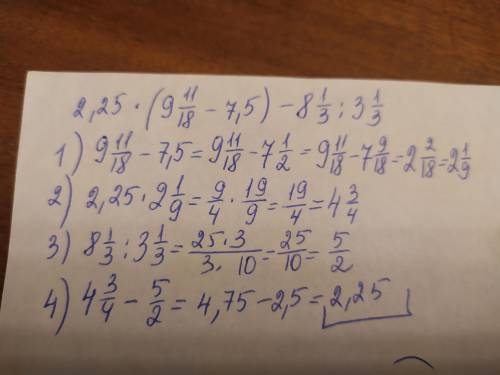 2,25 · (9 11/18 − 7,5) − 8 1/3 : 3 1/3
1) 9 11/18 − 7,5 = 9 11/18 − 7 1/2 = 9 11/18 − 7 9/18 = 2 2/18 = 2 1/9
2) 2,25 · 2 1/9 = 9/4 · 19/9 = 19/4 = 4 3/4
3) 8 1/3 : 3 1/3 = 25·3/3·10 = 25/10 = 5/2
4) 4 3/4 − 5/2 = 4,75 − 2,5 = 2,25